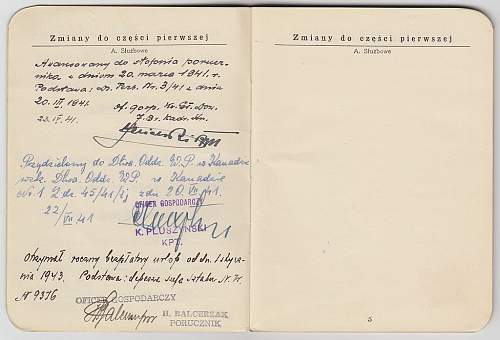 Zmiany do części pierwszej
A. Służbowe
Awansowany do stopnia porucz-
nika z dniem 20. marca 1941. r.
Podstawa: Dz. Pers. Nr. 3/41 z dnia
20. III. 1941.
Przydzielony do Dtwa. Oddz. W.P. w Kanadzie
rozk. Dtwa. Oddz. W.P. w Kanadzie
No 1 L.dz. 45/41/tj z dn 20 VII 41.
22/VII 41
OFICER GOSPODARCZY
K. PLUSZYŃSKI
KPT.
Otrzymał roczny bezpłatny urlop od dn. 1 stycz-
nia 1943. Podstawa: depesza szefa sztabu N. W.
N 9376
OFICER GOSPODARCZY
H. BALCERZAK
PORUCZNIK
Zmiany do części pierwszej
A. Służbowe
5